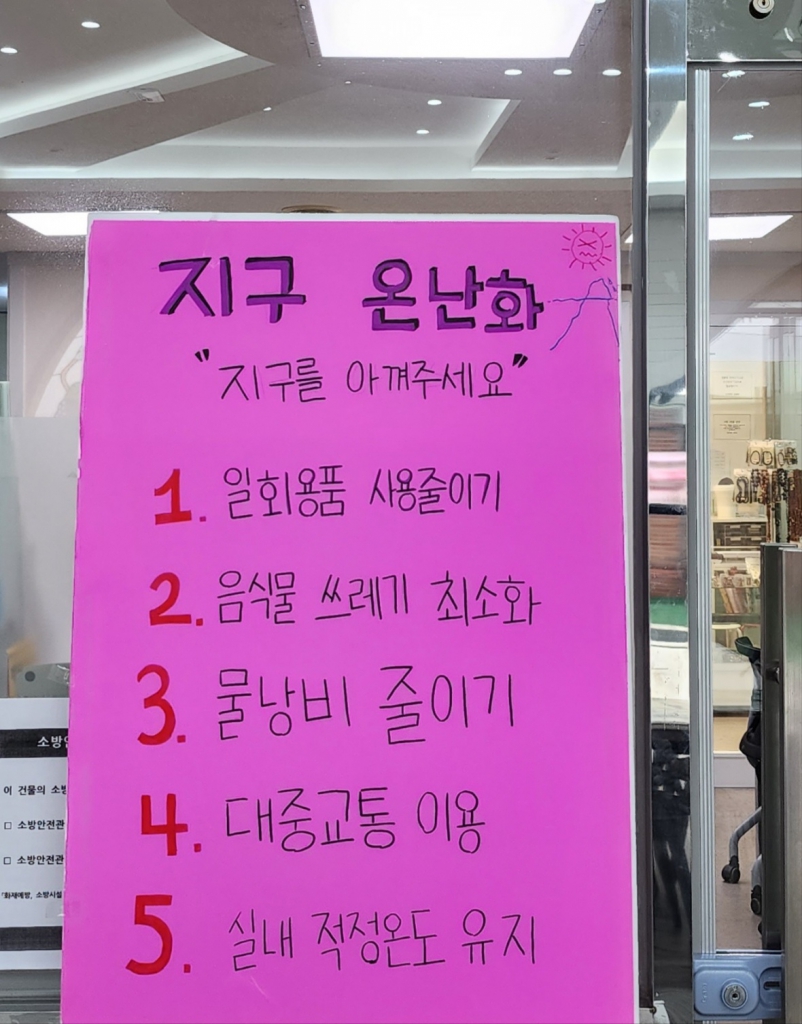 지구 온난화
"지구를 아껴주세요"
1. 일회용품 사용줄이기
2. 음식물 쓰레기 최소화
3. 물낭비 줄이기
4. 대중교통 이용
5. 실내 적정온도 유지
이 건물의
□ 소방안전관
□ 소방안전관